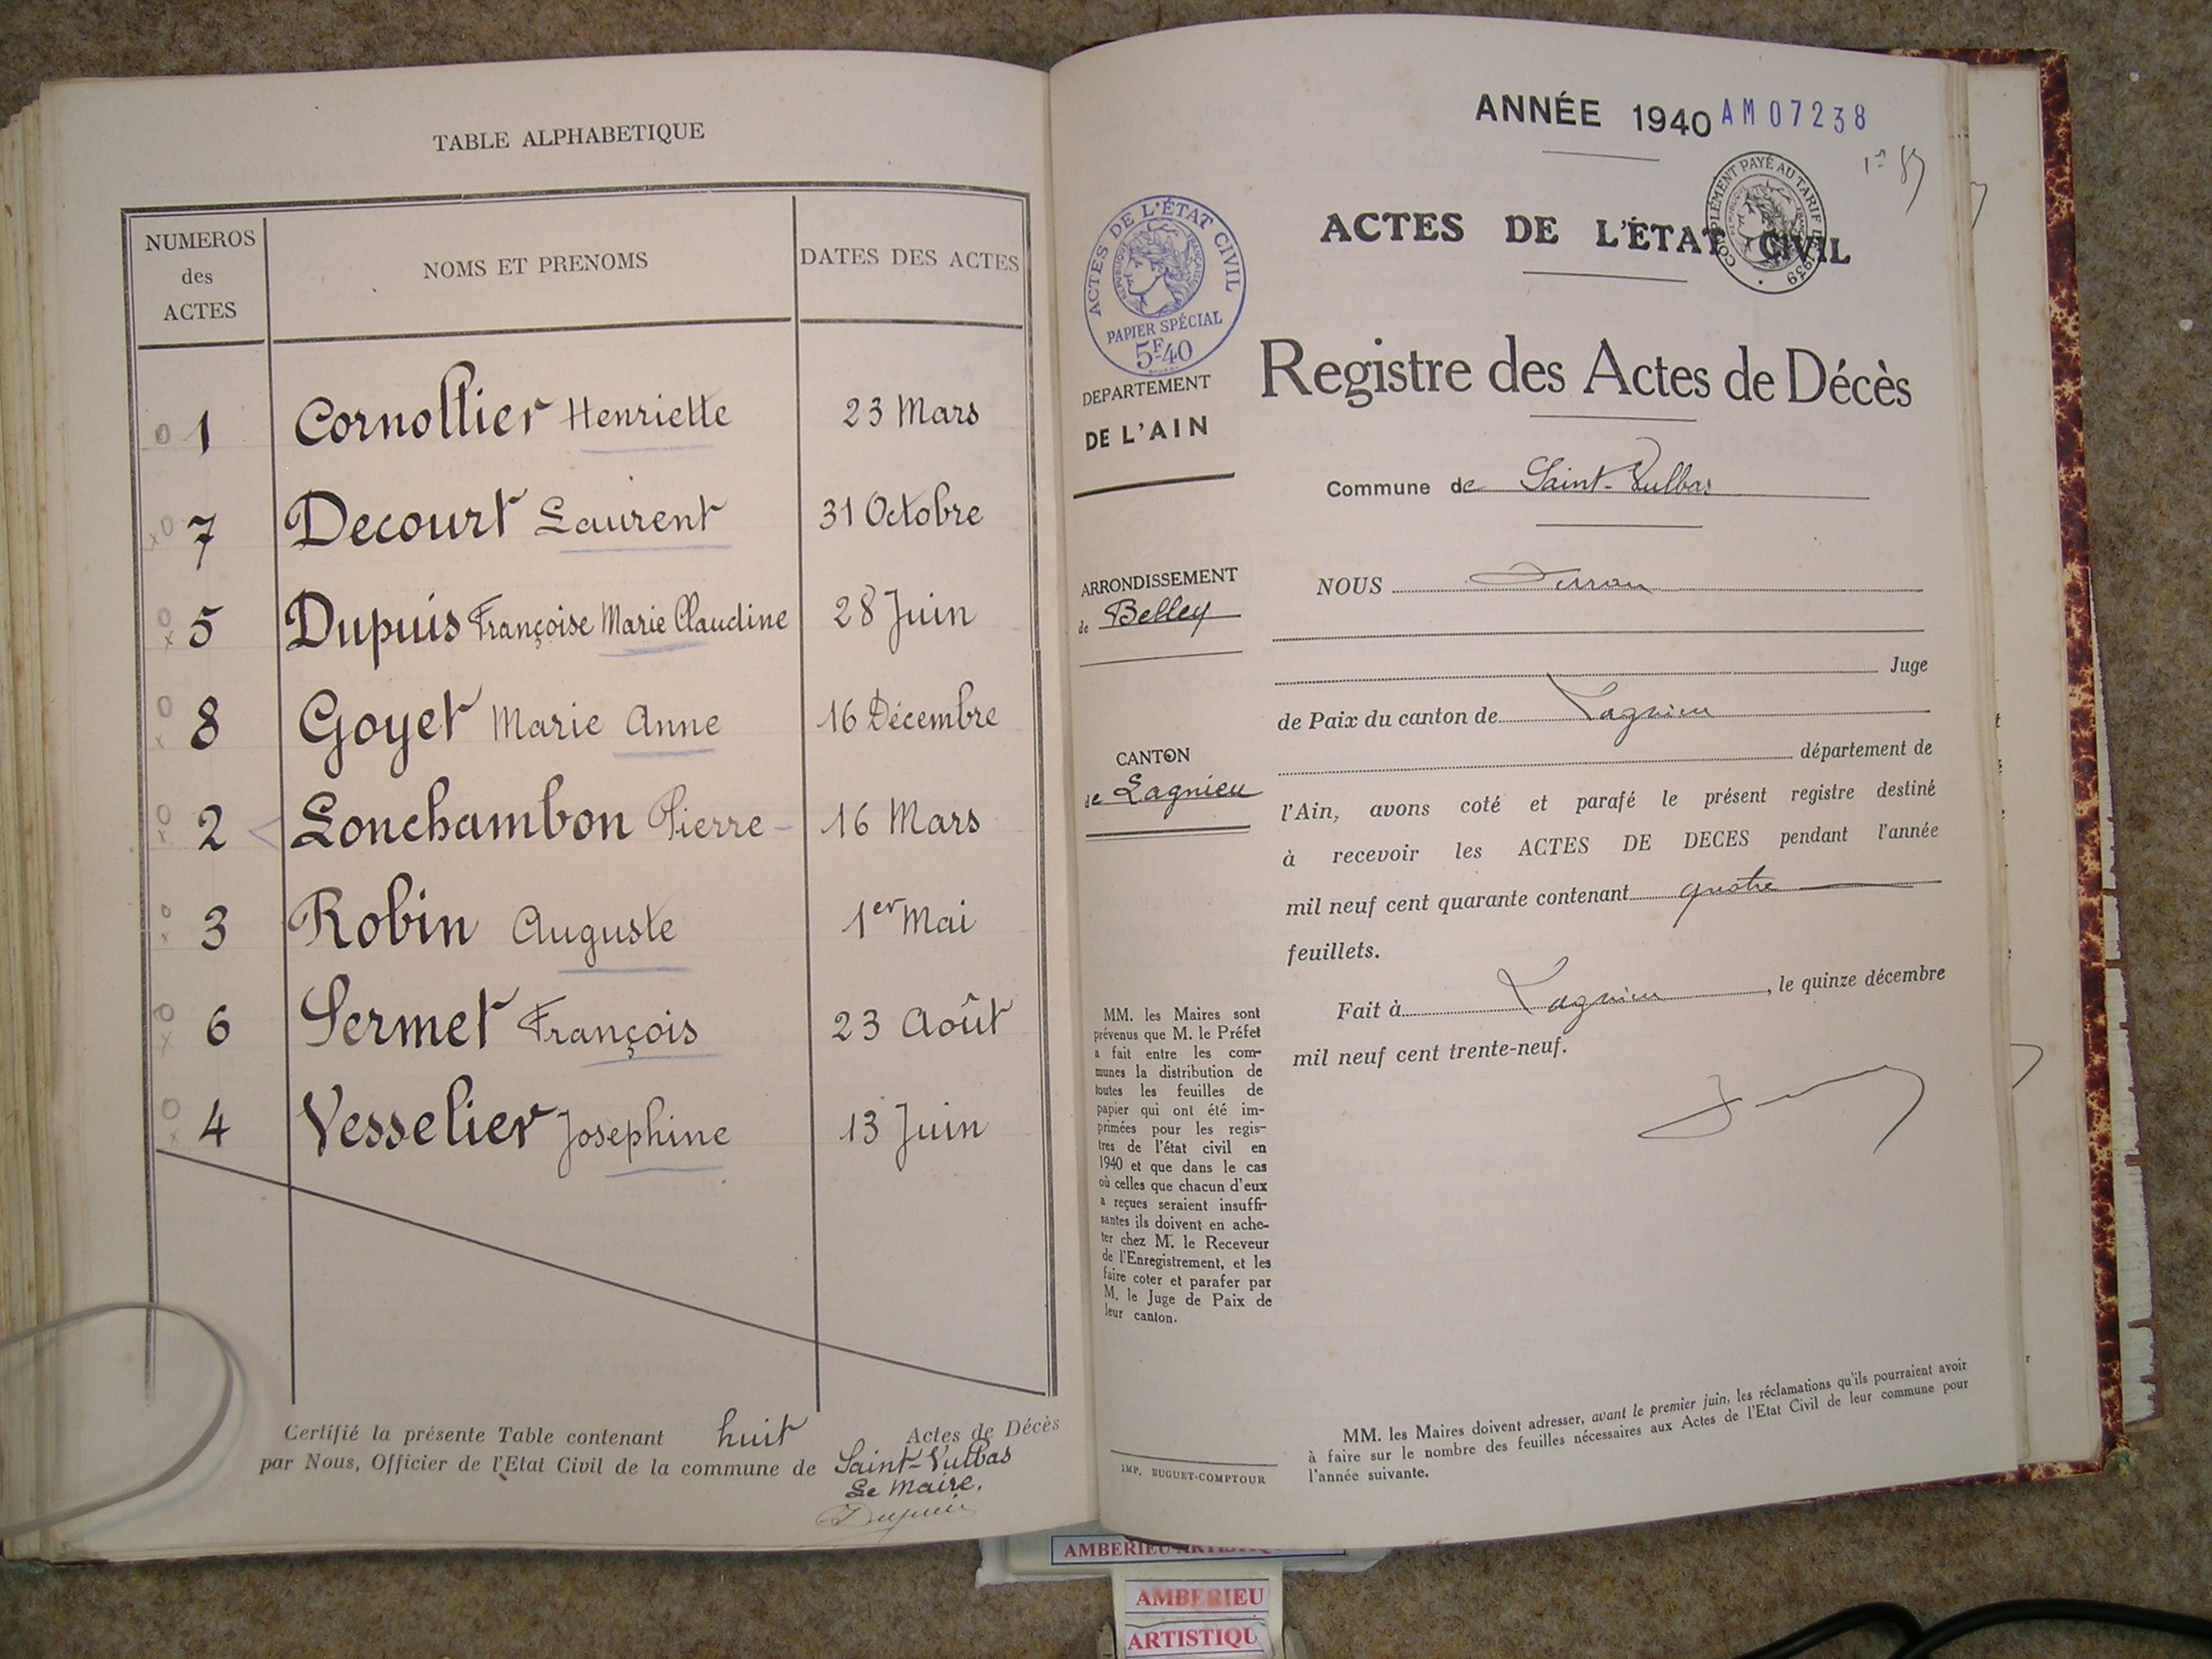 TABLE ALPHABETIQUE
NUMEROS des ACTES NOMS ET PRENOMS DATES DES ACTES
1 Cornollier Henriette 23 Mars
7 Decourt Laurent 31 Octobre
5 Dupuis Françoise Marie Claudine 28 Juin
8 Goyet Marie Anne 16 Décembre
2 Lonchambon Pierre 16 Mars
3 Robin Auguste 1er Mai
6 Sermet François 23 Août
4 Vesselier Josephine 13 Juin
Certifié la présente Table contenant huit Actes de Décès
par Nous, Officier de l'Etat Civil de la commune de Saint-Vulbas
Le Maire,
Dupuis
ANNÉE 1940 AM07238
COMPLÉMENT PAYÉ AU TARIF DE 1939
ACTES DE L'ÉTAT CIVIL
ACTES DE L'ÉTAT CIVIL
RÉPUBLIQUE FRANÇAISE
PAPIER SPÉCIAL
5F40
Registre des Actes de Décès
DEPARTEMENT
DE L'AIN
Commune de Saint-Vulbas
ARRONDISSEMENT
de Belley
CANTON
de Lagnieu
NOUS
Juge
de Paix du canton de Lagnieu
département de
l'Ain, avons coté et parafé le présent registre destiné
à recevoir les ACTES DE DECES pendant l'année
mil neuf cent quarante contenant quatre
feuillets.
Fait à Lagnieu, le quinze décembre
mil neuf cent trente-neuf.
MM. les Maires sont
prévenus que M. le Préfet
a fait entre les com-
munes la distribution de
toutes les feuilles de
papier qui ont été im-
primées pour les regis-
tres de l'état civil en
1940 et que dans le cas
où celles que chacun d'eux
a reçues seraient insuffi-
santes ils doivent en ache-
ter chez M. le Receveur
de l'Enregistrement, et les
faire coter et parafer par
M. le Juge de Paix de
leur canton.
IMP. BUGUET-COMPTOUR
MM. les Maires doivent adresser, avant le premier juin, les réclamations qu'ils pourraient avoir
à faire sur le nombre des feuilles nécessaires aux Actes de l'Etat Civil de leur commune pour
l'année suivante.
AMBERIEU
AMBERIEU
ARTISTIQU